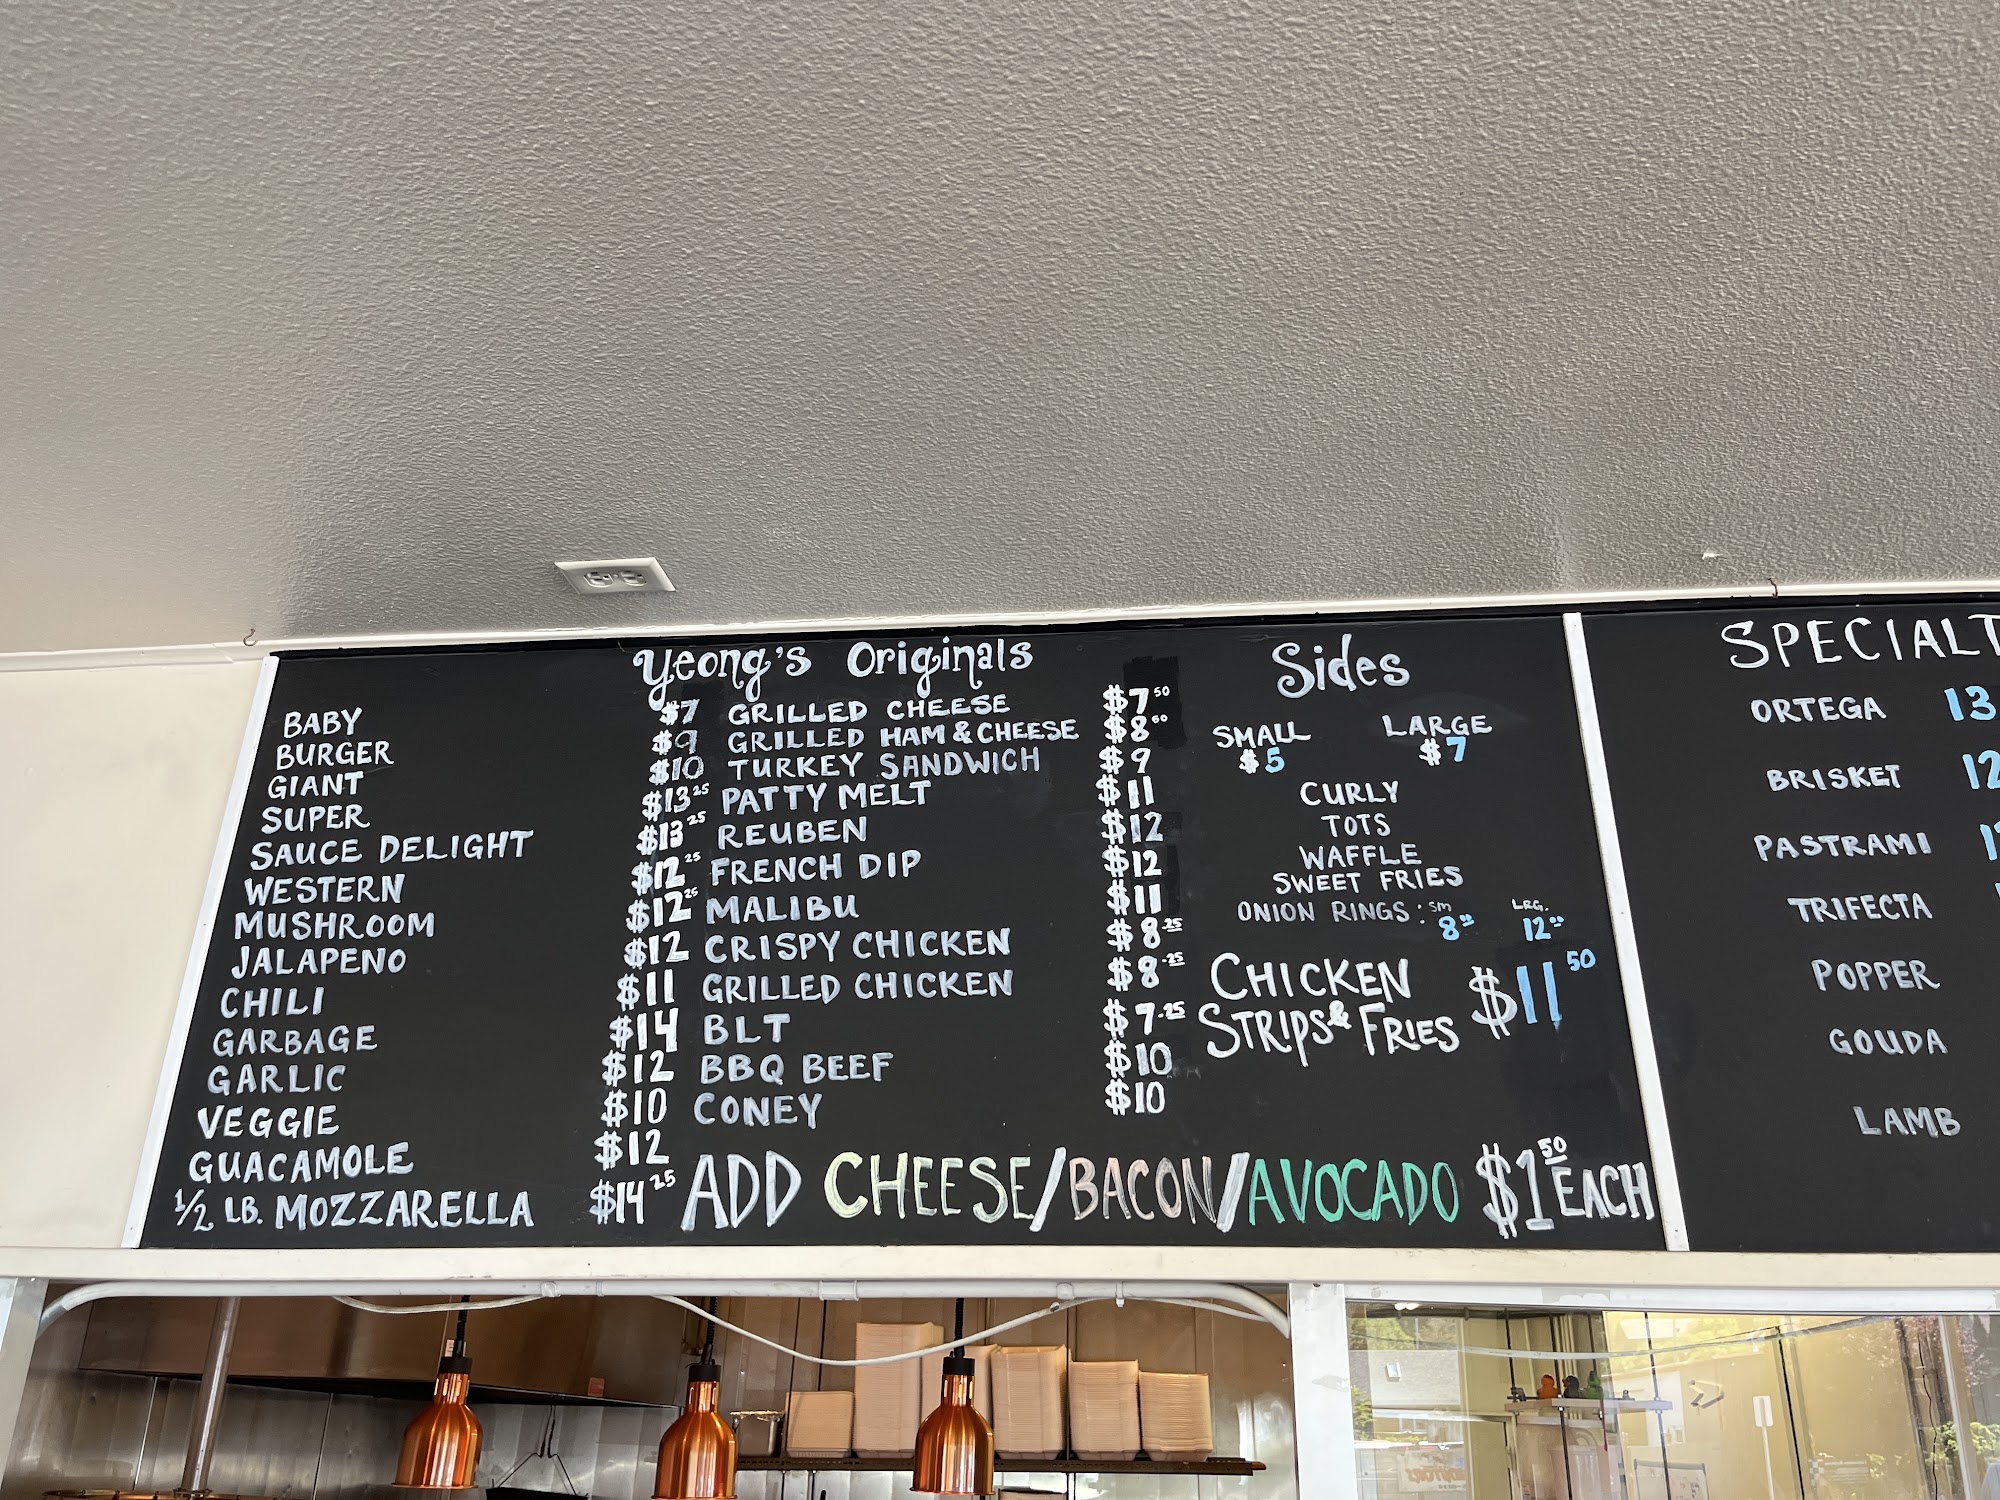 Yeong's Originals
BABY $7
BURGER $9
GIANT $10
SUPER $13 25
SAUCE DELIGHT $13 25
WESTERN $12 25
MUSHROOM $12 25
JALAPENO $12
CHILI $11
GARBAGE $14
GARLIC $12
VEGGIE $10
GUACAMOLE $12
1/2 LB. MOZZARELLA $14 25
GRILLED CHEESE $7 50
GRILLED HAM & CHEESE $8
TURKEY SANDWICH $9
PATTY MELT $11
REUBEN $12
FRENCH DIP $12
MALIBU $11
CRISPY CHICKEN $8.25
GRILLED CHICKEN $8.25
BLT $7.25
BBQ BEEF $10
CONEY $10
Sides
SMALL LARGE
$5 $7
CURLY
TOTS
WAFFLE
SWEET FRIES
ONION RINGS: SM 8 LRG. 12
CHICKEN
STRIPS & FRIES $11 50
ADD CHEESE/BACON/AVOCADO $1 50 EACH
SPECIALT
ORTEGA 13
BRISKET 12
PASTRAMI
TRIFECTA
POPPER
GOUDA
LAMB